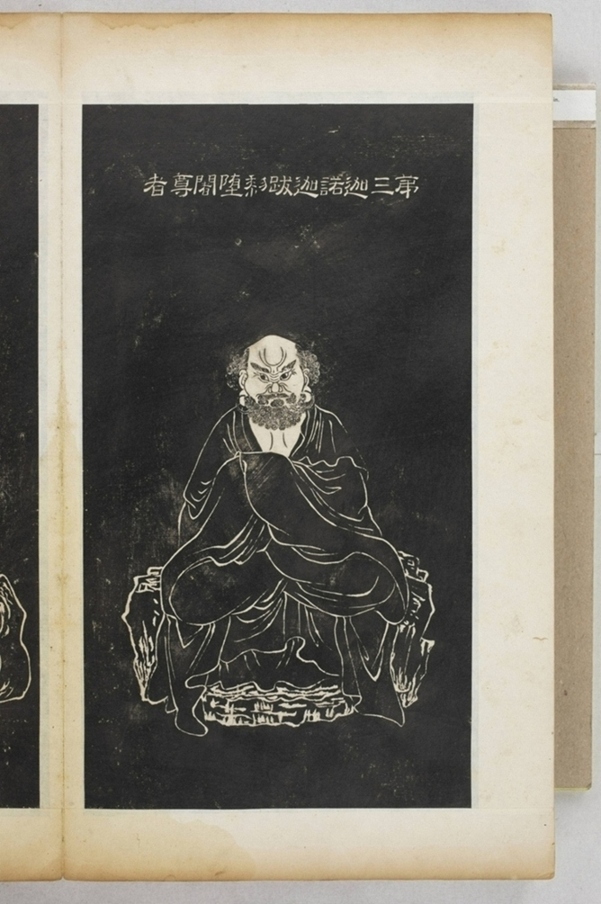 第三迦諾迦跋黎堕闍尊者